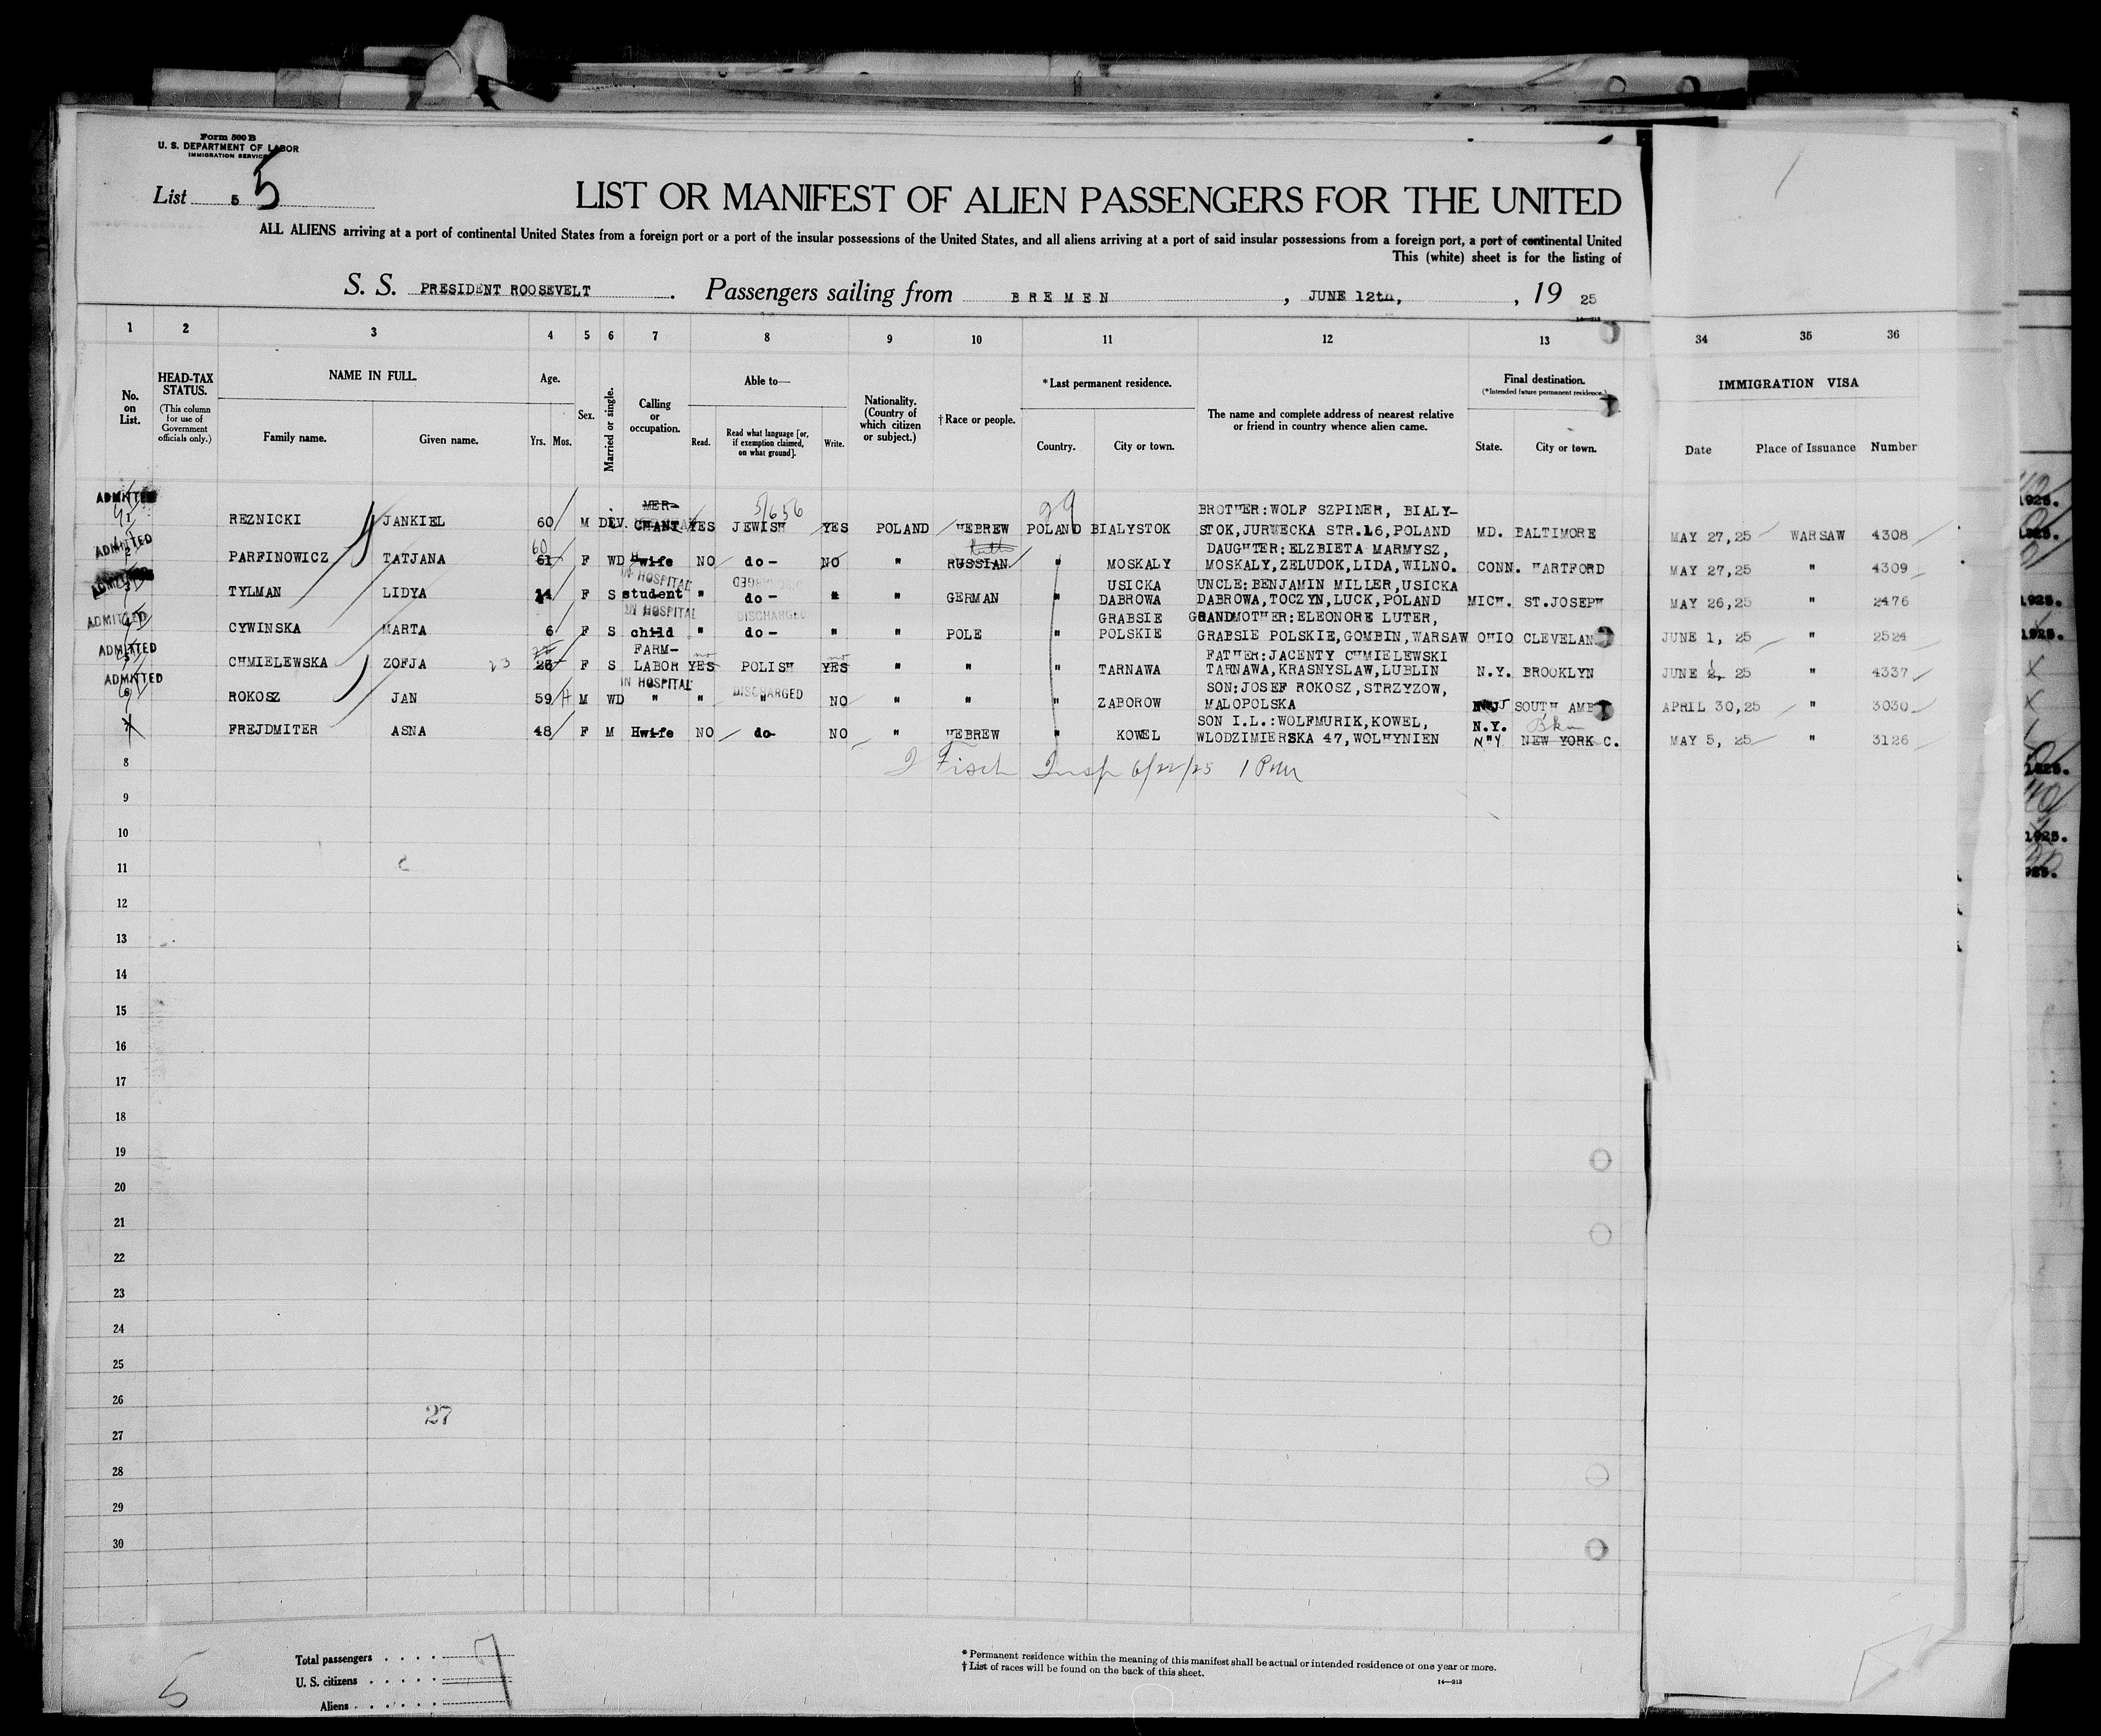 Form 500 B
U. S. DEPARTMENT OF LABOR
IMMIGRATION SERVICE
List 5 5
LIST OR MANIFEST OF ALIEN PASSENGERS FOR THE UNITED
ALL ALIENS arriving at a port of continental United States from a foreign port or a port of the insular possessions of the United States, and all aliens arriving at a port of said insular possessions from a foreign port, a port of continental United
This (white) sheet is for the listing of
S. S. PRESIDENT ROOSEVELT. Passengers sailing from BREMEN, JUNE 12th, 19 25
1 2 3 4 5 6 7 8 9 10 11 12 13 34 35 36
No. on List.
HEAD-TAX STATUS. (This column for use of Government officials only.)
NAME IN FULL. Family name. Given name.
Age. Yrs. Mos.
Sex.
Married or single.
Calling or occupation.
Able to— Read. Read what language [or, if exemption claimed, on what ground]. Write.
Nationality. (Country of which citizen or subject.)
†Race or people.
*Last permanent residence. Country. City or town.
The name and complete address of nearest relative or friend in country whence alien came.
Final destination. (*Intended future permanent residence.) State. City or town.
IMMIGRATION VISA Date Place of Issuance Number
ADMITTED 1 REZNICKI JANKIEL 60 M DIV. MER-CHANT YES JEWISH YES POLAND HEBREW POLAND BIALYSTOK BROTHER:WOLF SZPINER, BIALY-STOK,JURWECKA STR.16,POLAND MD. BALTIMORE MAY 27,25 WARSAW 4308
ADMITTED 2 PARFINOWICZ TATJANA 60 61 F WD Hwife NO do- NO " RUSSIAN " MOSKALY DAUGHTER:ELZBIETA MARMYSZ, MOSKALY,ZELUDOK,LIDA,WILNO. CONN. HARTFORD MAY 27,25 " 4309
ADMITTED 3 TYLMAN LIDYA 14 F S IN HOSPITAL student " DISCHARGED do- " " GERMAN " USICKA DABROWA UNCLE:BENJAMIN MILLER,USICKA DABROWA,TOCZYN,LUCK,POLAND MICH. ST.JOSEPH MAY 26,25 " 2476
ADMITTED 4 CYWINSKA MARTA 6 F S IN HOSPITAL child " DISCHARGED do- " " POLE " GRABSIE POLSKIE GRANDMOTHER:ELEONORE LUTER, GRABSIE POLSKIE,GOMBIN,WARSAW OHIO CLEVELAN JUNE 1, 25 " 2524
ADMITTED 5 CHMIELEWSKA ZOFJA 23 F S FARM-LABOR YES no POLISH YES no " " " TARNAWA FATHER:JACENTY CHMIELEWSKI TARNAWA,KRASNYSLAW,LUBLIN N.Y. BROOKLYN JUNE 2, 25 " 4337
ADMITTED 6 ROKOSZ JAN 59 M WD IN HOSPITAL " " DISCHARGED " NO " " " ZABOROW SON:JOSEF ROKOSZ,STRZYZOW, MALOPOLSKA NJ SOUTH AMB APRIL 30,25 " 3030
7 FREJDMITER ASNA 48 F M Hwife NO do- NO " HEBREW " KOWEL SON I.L.:WOLFMURIK,KOWEL, WLODZIMIERSKA 47,WOLHYNIEN N.Y. Bkn N.Y. NEW YORK C. MAY 5, 25 " 3126
8 Fisch Insp 6/22/25
9
10
11
12
13
14
15
16
17
18
19
20
21
22
23
24
25
26
27
27
28
29
30
5
Total passengers . . . . 7
U. S. citizens . . . . .
Aliens . . . . . .
* Permanent residence within the meaning of this manifest shall be actual or intended residence of one year or more.
† List of races will be found on the back of this sheet.
14—213